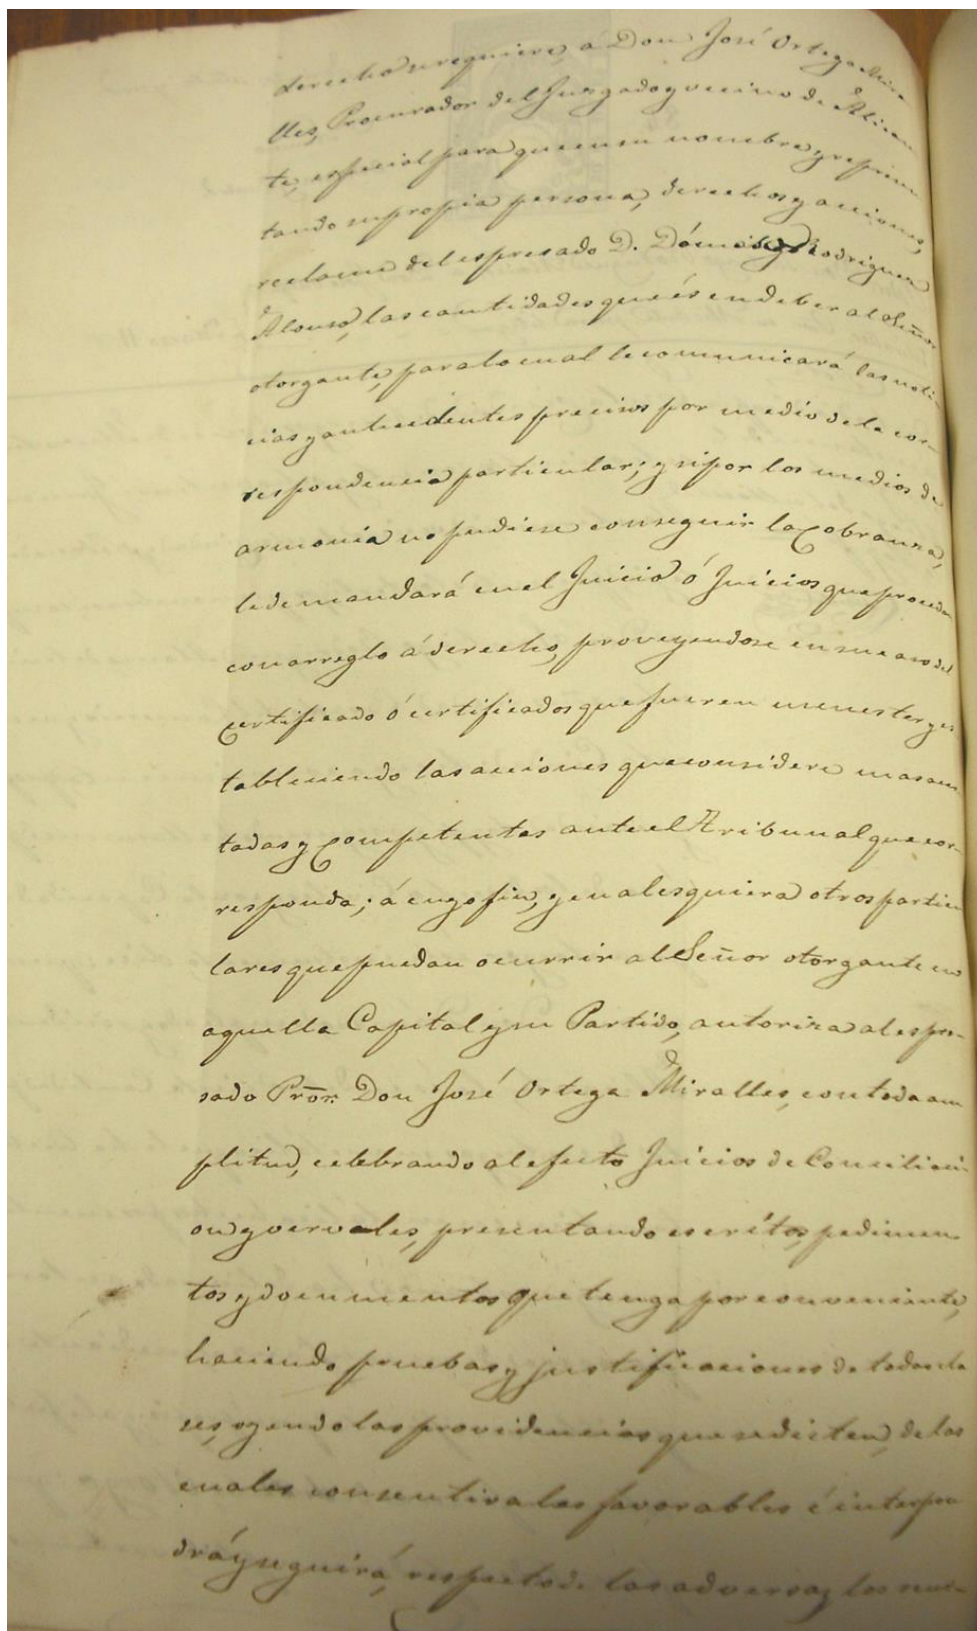 derecho se requiere, a Don José Ortega Mira
lles, Procurador del Juzgado y vecino de Alican
te, especial para que en su nombre, y represen
tando su propia persona, derechos y acciones,
reclame del espresado D. Dómingo Rodriguez
Alonso, las cantidades que és en deber al Señor
otorgante, para lo cual le comunicará las noti-
cias y antecedentes precisos por medio de la cor-
respondencia particular; y si por los medios de
armonia no pudiese conseguir la cobranza,
le demandará en el Juicio ó Juicios que procedan
con arreglo á derecho, proveyendose en su caso del
certificado ó certificados que fueren menester y es
tableciendo las acciones que considere mas acer
tadas y competentes ante el Tribunal que cor-
responda; á cuyo fin, y cualesquiera otros particu
lares que puedan ocurrir al Señor otorgante en
aquella Capital y su Partido, autoriza al espre-
sado Pror. Don José Ortega Miralles, con toda am
plitud, celebrando al efecto Juicios de Conciliaci
on y vervales, presentando escritos, pedimen-
tos y documentos que tenga por conveniente,
haciendo pruebas y justificaciones de todas cla
ses, oyendo las providencias que se dicten, de las
cuales consentira las favorables é interpon
drá y seguirá, respecto de las adversas, los